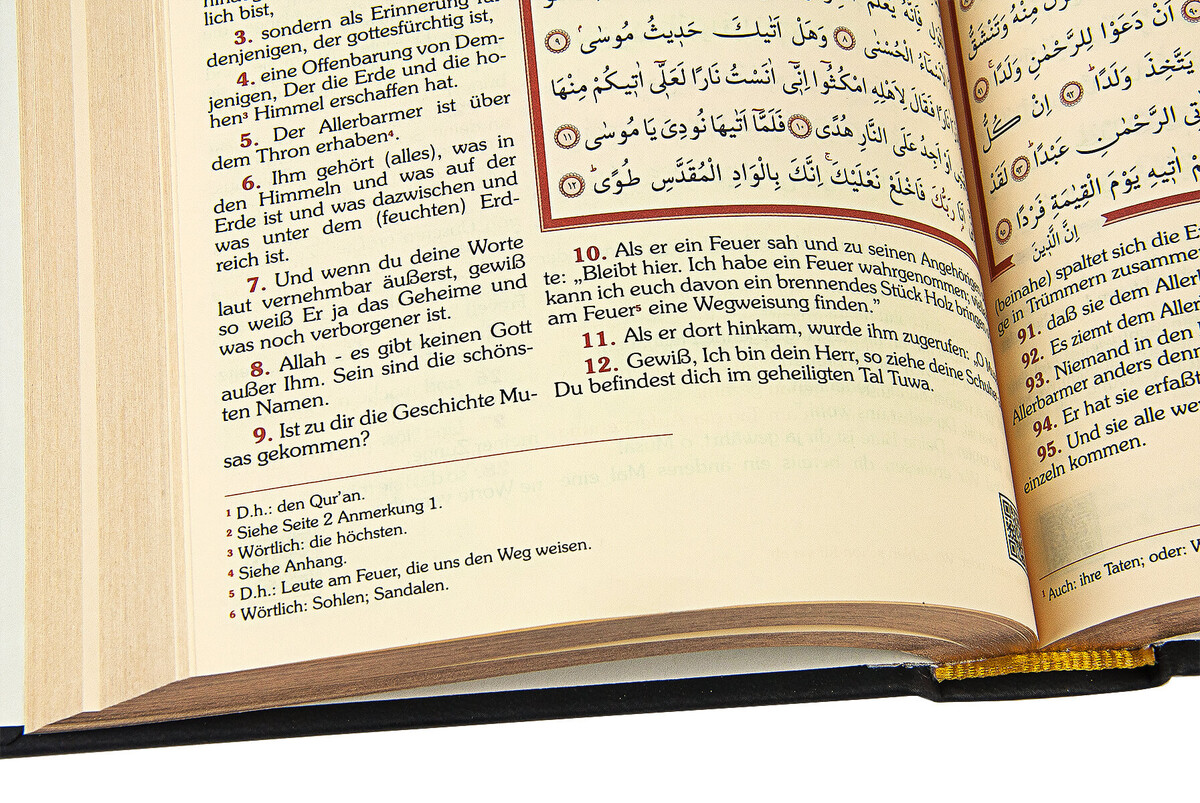 lich bist,
3. sondern als Erinnerung für
denjenigen, der gottesfürchtig ist,
4. eine Offenbarung von Dem-
jenigen, Der die Erde und die ho-
hen³ Himmel erschaffen hat.
5. Der Allerbarmer ist über
dem Thron erhaben⁴.
6. Ihm gehört (alles), was in
den Himmeln und was auf der
Erde ist und was dazwischen und
was unter dem (feuchten) Erd-
reich ist.
7. Und wenn du deine Worte
laut vernehmbar äußerst, gewiß
so weiß Er ja das Geheime und
was noch verborgener ist.
8. Allah - es gibt keinen Gott
außer Ihm. Sein sind die schöns-
ten Namen.
9. Ist zu dir die Geschichte Mu-
sas gekommen?
فَاِنَّهُ يَعْلَمُ
الْاَسْمَٓاءُ الْحُسْنٰى ٨ وَهَلْ اَتٰيكَ حَد۪يثُ مُوسٰىۢ ٩
نَارًا فَقَالَ لِاَهْلِهِ امْكُثُٓوا اِنّ۪ٓي اٰنَسْتُ نَارًا لَعَلّ۪ٓي اٰت۪يكُمْ مِنْهَا
اَوْ اَجِدُ عَلَى النَّارِ هُدًى ١٠ فَلَمَّٓا اَتٰيهَا نُودِيَ يَا مُوسٰى ١١
رَبُّكَ فَاخْلَعْ نَعْلَيْكَۚ اِنَّكَ بِالْوَادِ الْمُقَدَّسِ طُوًىۜ ١٢
10. Als er ein Feuer sah und zu seinen Angehörigen
te: „Bleibt hier. Ich habe ein Feuer wahrgenommen;
kann ich euch davon ein brennendes Stück Holz bringen
am Feuer⁵ eine Wegweisung finden.”
11. Als er dort hinkam, wurde ihm zugerufen: „O
12. Gewiß, Ich bin dein Herr, so ziehe deine Schuhe
Du befindest dich im geheiligten Tal Tuwa.
¹ D.h.: den Qur’an.
² Siehe Seite 2 Anmerkung 1.
³ Wörtlich: die höchsten.
⁴ Siehe Anhang.
⁵ D.h.: Leute am Feuer, die uns den Weg weisen.
⁶ Wörtlich: Sohlen; Sandalen.
مِنْهُ وَتَنْشَقُّ
اَنْ دَعَوْا لِلرَّحْمٰنِ وَلَدًاۚ ٩١
يَتَّخِذَ وَلَدًاۜ ٩٢ اِنْ كُلُّ
الرَّحْمٰنِ عَبْدًاۜ ٩٣ لَقَدْ
اٰت۪يهِ يَوْمَ الْقِيٰمَةِ فَرْدًا ٩٥
اِنَّ الَّذ۪ينَ
(beinahe) spaltet sich die
ge in Trümmern zusammen
91. daß sie dem
92. Es ziemt dem
93. Niemand in den
Allerbarmer anders denn
94. Er hat sie erfaßt
95. Und sie alle
einzeln kommen.
¹ Auch: ihre Taten; oder: